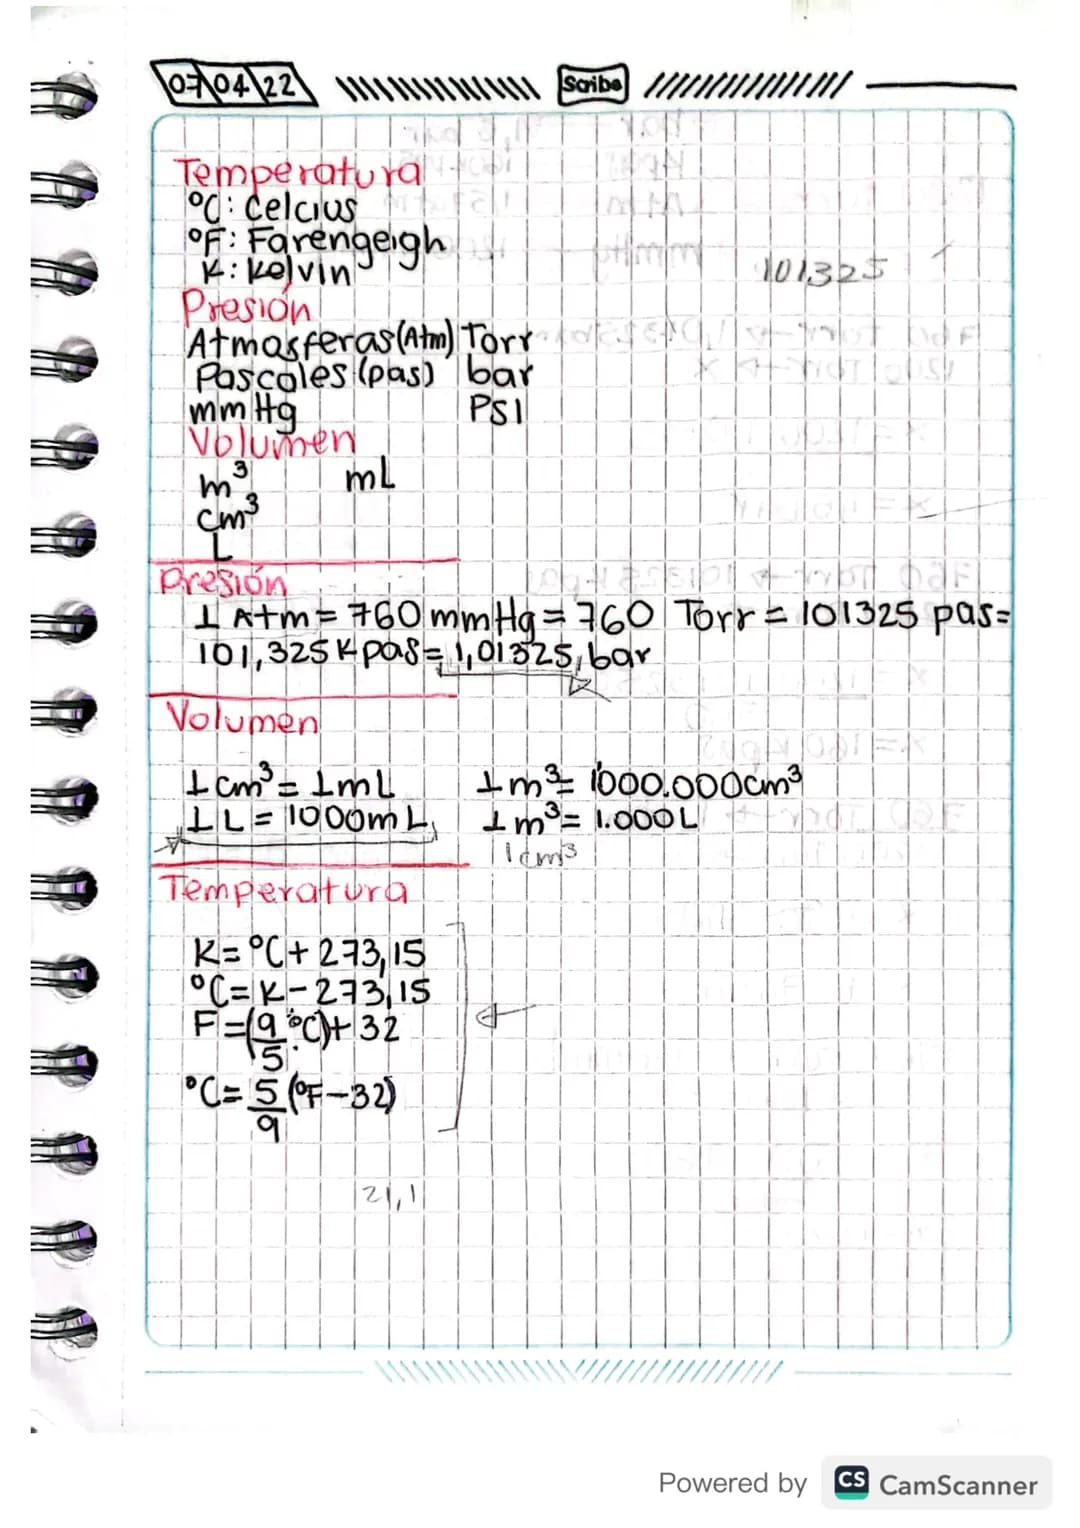 07 04 22 Scribe
Temperatura
°C: Celcius
°F: Farengeigh
K: Kelvin
101,325
Presión
Atmosferas (Atm) Torr
Pascales (pas) bar
mmHg PSI
Volumen
m³ mL
cm³
L
Presión
1 Atm = 760 mmHg = 760 Torr = 101325 pas=
101,325 Kpas= 1,01325 bar
Volumen
1 cm³ = 1mL 1m³= 1000.000cm³
1 L = 1000mL 1m³= 1.000L
1cm³
Temperatura
K= °C+ 273,15
°C= K-273,15
F=(9/5.°C)+ 32
°C= 5/9 (°F-32)
21,1
Powered by CS CamScanner